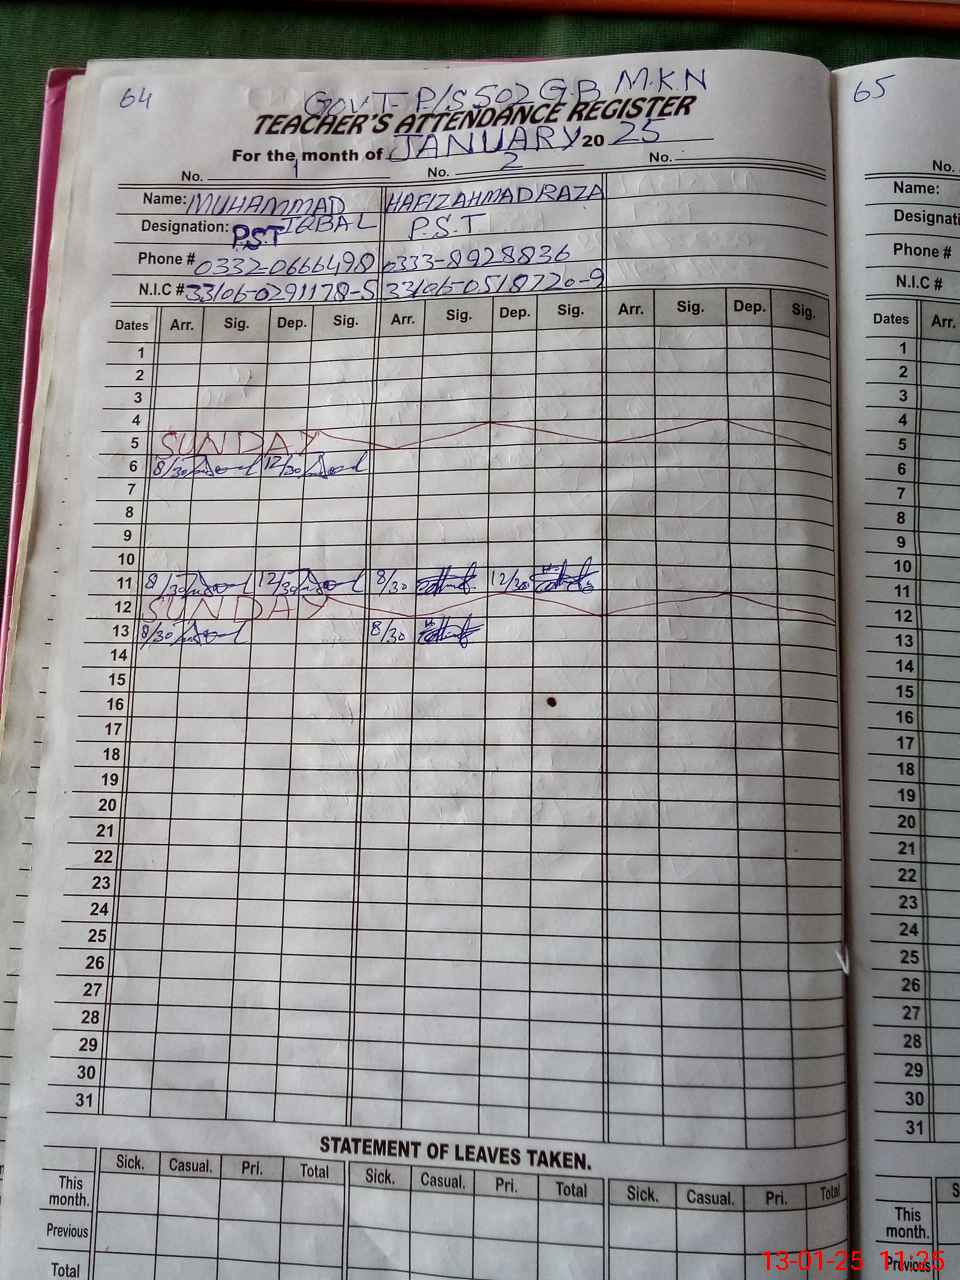 64
GOVT- P/S 502 G.B M.K.N
TEACHER'S ATTENDANCE REGISTER
For the month of JANUARY 20 25
No. 1 No. 2 No.
Name: MUHAMMAD IQBAL HAFIZ AHMAD RAZA
Designation: P.S.T P.S.T
Phone # 0332-0666498 0333-8928836
N.I.C # 33106-0291178-5 33106-0518720-9
Dates Arr. Sig. Dep. Sig. Arr. Sig. Dep. Sig. Arr. Sig. Dep. Sig.
1
2
3
4
5 SUNDAY
6 8/30 12/30
7
8
9
10
11 8/30 12/30 8/30 12/30
12 SUNDAY
13 8/30 8/30
14
15
16
17
18
19
20
21
22
23
24
25
26
27
28
29
30
31
STATEMENT OF LEAVES TAKEN.
Sick. Casual. Pri. Total Sick. Casual. Pri. Total Sick. Casual. Pri. Total
This month.
Previous
Total
65
No.
Name:
Designati
Phone #
N.I.C #
Dates Arr.
1
2
3
4
5
6
7
8
9
10
11
12
13
14
15
16
17
18
19
20
21
22
23
24
25
26
27
28
29
30
31
S
This month.
Previous
13-01-25 11:35